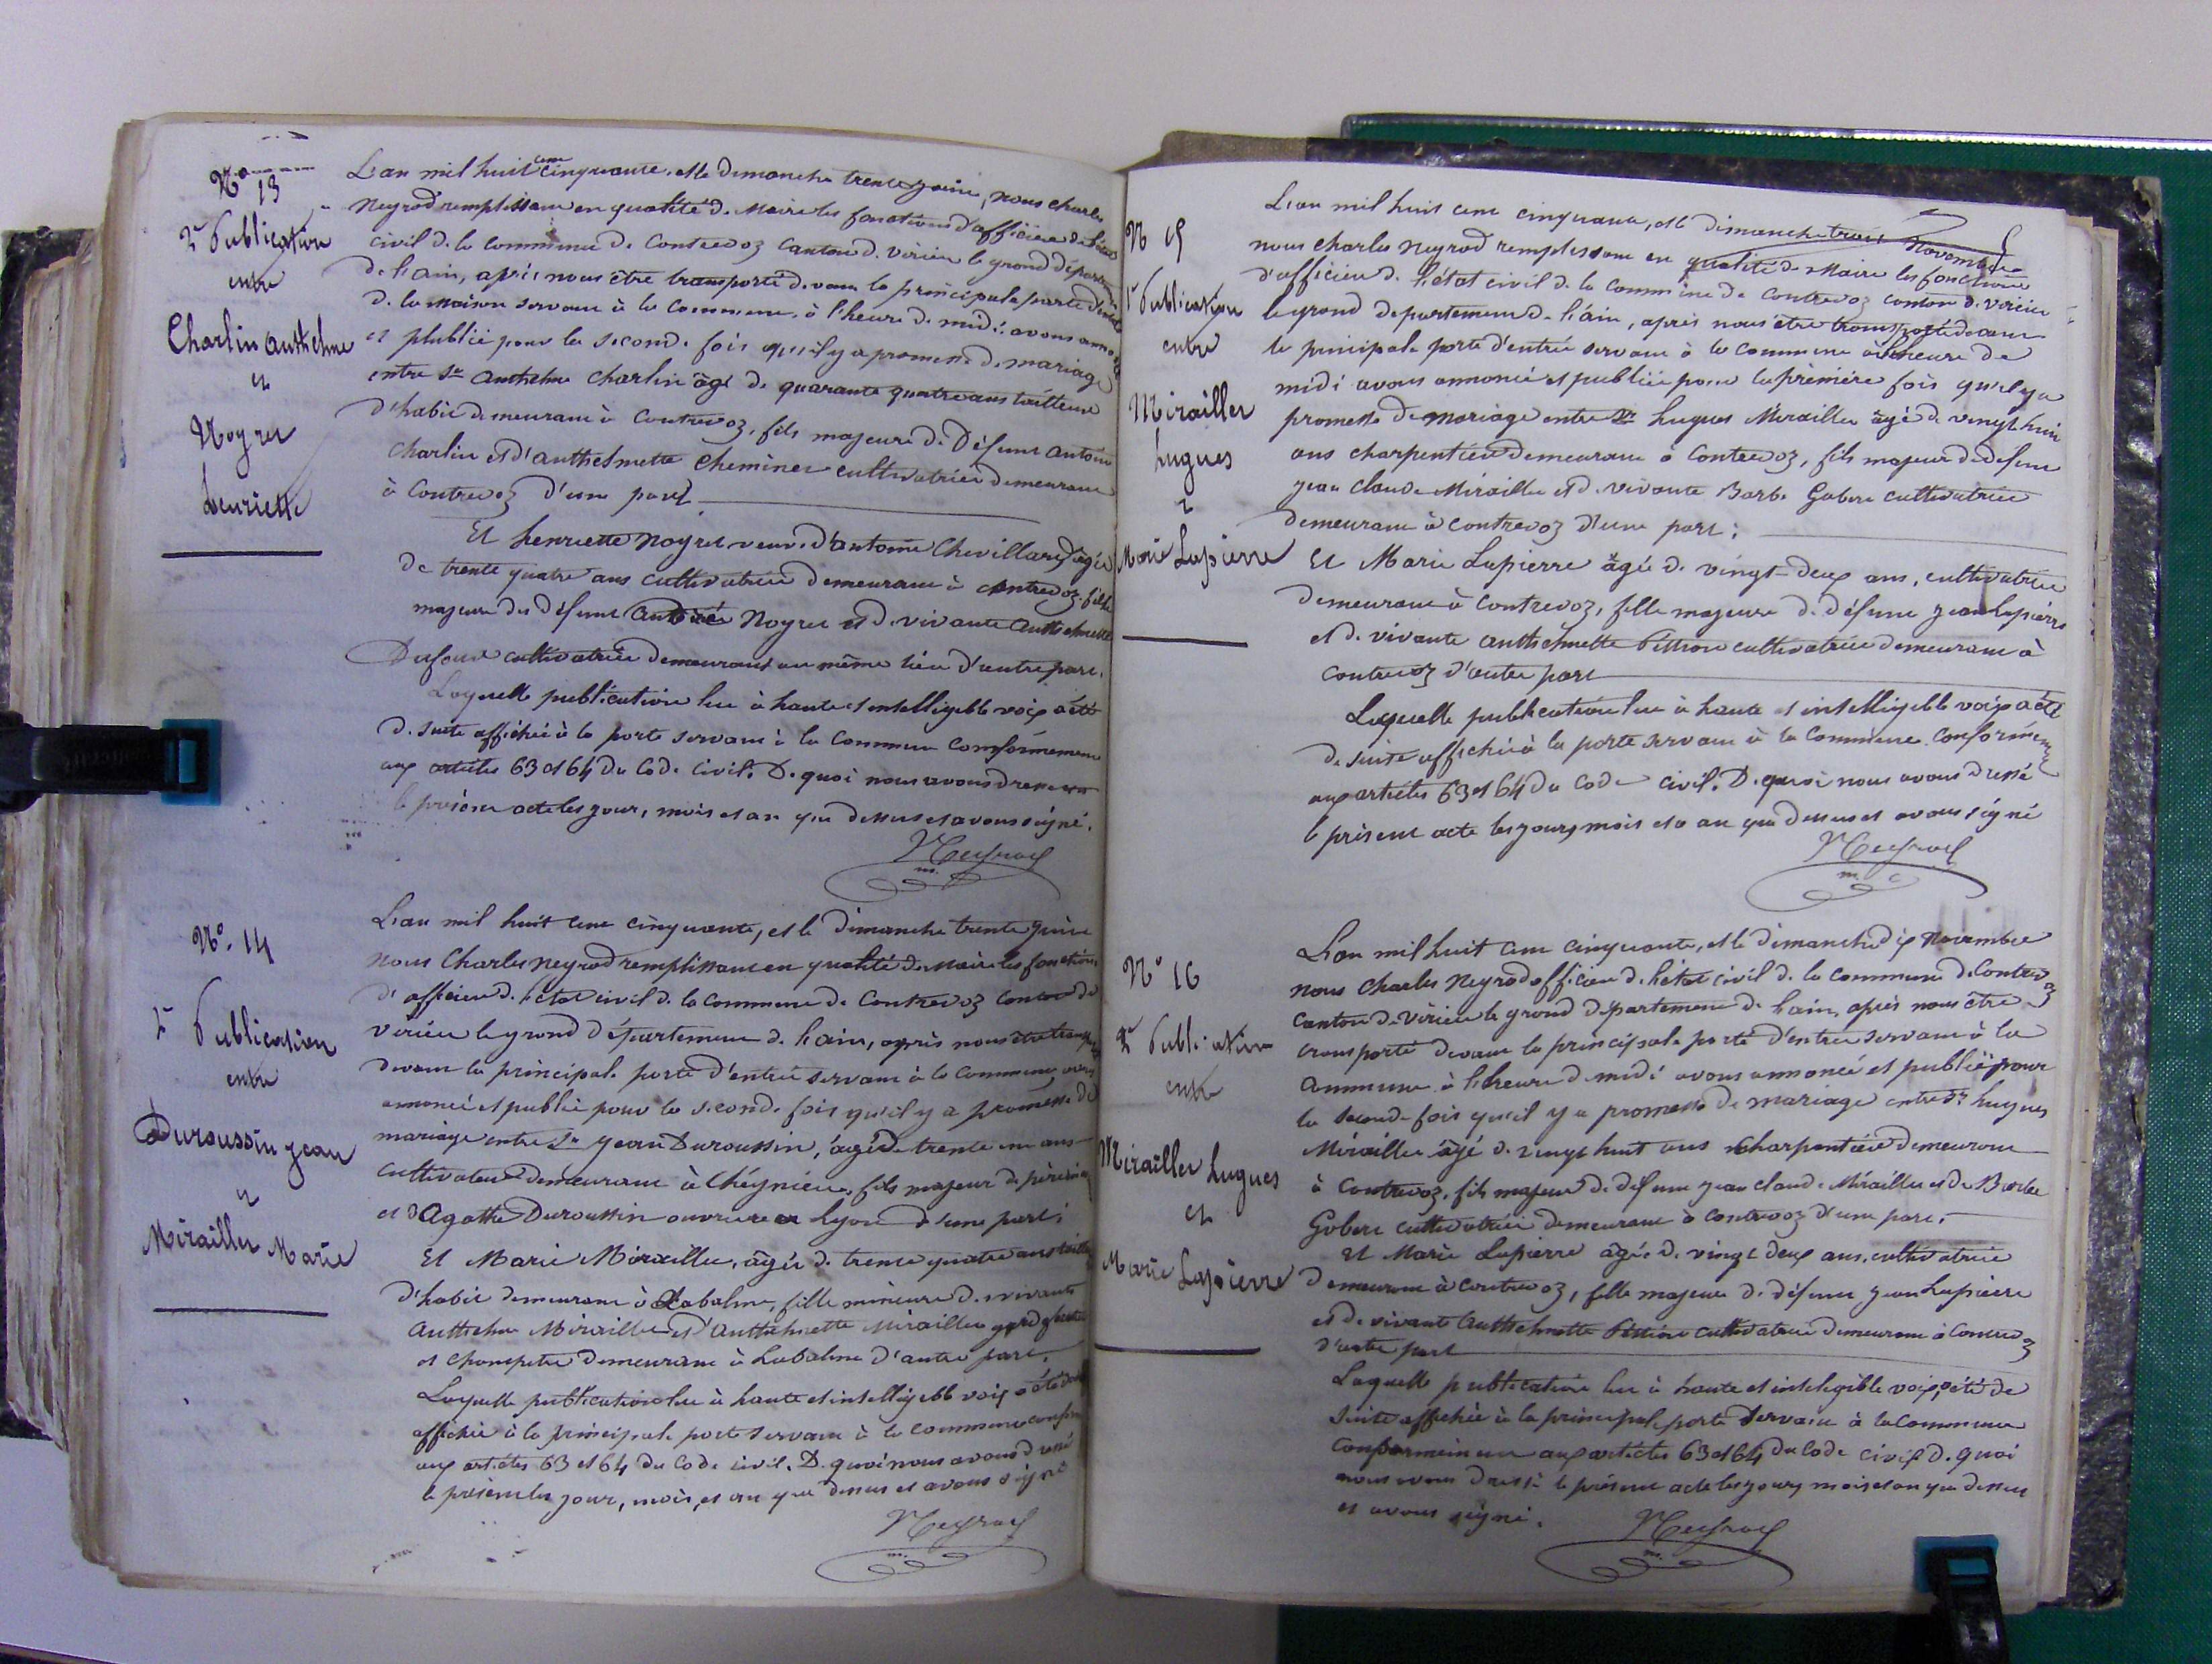 No 13
2e Publication
entre
Charlin Anthelme
et
Noyret
henriette
L'an mil huit cent cinquante, et le dimanche trente juin, nous charles
Neyrod remplissant en qualité de Maire les fonctions d'officier de l'état
civil de la commune de Contrevoz canton de virieu le grand département
de l'ain, après nous être transporté devant la principale porte d'entrée
de la maison servant à la commune, à l'heure de midi, avons annoncé
et plublié pour la seconde fois qu'il y a promesse de mariage
entre Sr Anthelme Charlin âgé de quarante quatre ans tailleur
d'habit demeurant à Contrevoz, fils majeure de Défunt Antoine
Charlin et d'anthelmette Cheminet cultivatrice demeurant
à Contrevoz d'une part
Et henriette Noyret veuve d'antoine Chevillard, âgée
de trente quatre ans cultivatrice demeurant à contrevoz, fille
majeure de défunt Noyret et de vivante Anthelmette
Dufour cultivatrice demeurant au même lieu d'autre part.
Laquelle publication lue à haute et intelligible voix a été
de suite affichée à la porte servant à la Commune Conformément
aux articles 63 et 64 du Code Civil. De quoi nous avons dressé
le présent acte les jour, mois et an que dessus et avons signé.
Neyrod
m.
No. 14
2e Publication
entre
Duroussin jean
et
Mirailler Marie
L'an mil huit cent cinquante, et le dimanche trente juin
nous Charles Neyrod remplissant en qualité de Maire les fonctions
d'officier de l'état civil de la commune de Contrevoz canton de
virieu le grand département de l'ain, après nous être transporté
devant la principale porte d'entrée servant à la commune, avons
annoncé et publié pour la seconde fois qu'il y a promesse de
mariage entre Sr jean Duroussin, âgé de trente un ans
cultivateur demeurant à Cheignieu, fils majeur de père
et d'Agathe Duroussin ouvriere a Lyon d'une part;
Et Marie Mirailler, âgée de trente quatre ans tailleuse
d'habit demeurant à Labalme, fille mineure de vivants
Anthelme Mirailler et d'Anthelmette Mirailler garde forestier
et champetre demeurant à Labalme d'autre part.
Laquelle publication lue à haute et intelligible voix a été de suite
affichée à la principale porte servant à la commune conformément
aux articles 63 et 64 du Code civil. De quoi nous avons dressé
le présent les jour, mois, et an que dessus et avons signé
Neyrod
m.
N 15
1e Publication
entre
Mirailler
hugues
et
Marie Lapierre
L'an mil huit cent cinquante, et le dimanche trois Novembre
nous charles Neyrod remplissant en qualité de Maire les fonctions
d'officier de l'état civil de la commune de Contrevoz canton de virieu
le grand departement de l'ain, après nous être transporté devant
la principale porte d'entrée servant à la commune à l'heure de
midi avons annoncé et publiée pour la première fois qu'il y a
promesse de mariage entre Sr hugues Mirailler âgé de vingt huit
ans charpentier demeurant à Contrevoz, fils majeur de defunt
jean claude Mirailler et de vivante Barbe Gobert cultivatrice
demeurant à contrevoz d'une part;
Et Marie Lapierre âgée de vingt-deux ans, cultivatrice
demeurant à Contrevoz, fille majeure de défunt jean Lapierre
et de vivante anthelmette Pittion cultivatrice demeurant à
contrevoz d'autre part
Laquelle publication lue à haute et intelligible voix a été
de suite affichée à la porte servant à la commune conformément
aux articles 63 et 64 du Code civil. De quoi nous avons dressé
le présent acte les jours, mois et an que dessus et avons signé
Neyrod
m.
No 16
2e Publication
entre
Mirailler hugues
et
Marie Lapierre
L'an mil huit cent cinquante, et le dimanche dix Novembre
nous Charles Neyrod officier de l'état civil de la commune de Contrevoz
canton de virieu le grand département de l'ain, après nous être
transporté devant la principale porte d'entrée servant à la
commune à l'heure de midi avons annoncé et publié pour
la seconde fois qu'il y a promesse de mariage entre Sr hugues
Mirailler âgé de vingt huit ans charpentier demeurant
à Contrevoz, fils majeur de défunt jean claude Mirailler et de Barbe
Gobert cultivatrice demeurant à contrevoz d'une part.
Et Marie Lapierre âgée de vingt deux ans, cultivatrice
demeurant à contrevoz, fille majeure de défunt jean Lapierre
et de vivante Anthelmette Pittion cultivatrice demeurant à Contrevoz
d'autre part
Laquelle publication lue à haute et intelegible voix, a été de
suite affichée à la principale porte servant à la commune
conformément aux articles 63 et 64 du Code civil. De quoi
nous avons dressé le présent acte les jours, mois et an que dessus
et avons signé.
Neyrod
m.